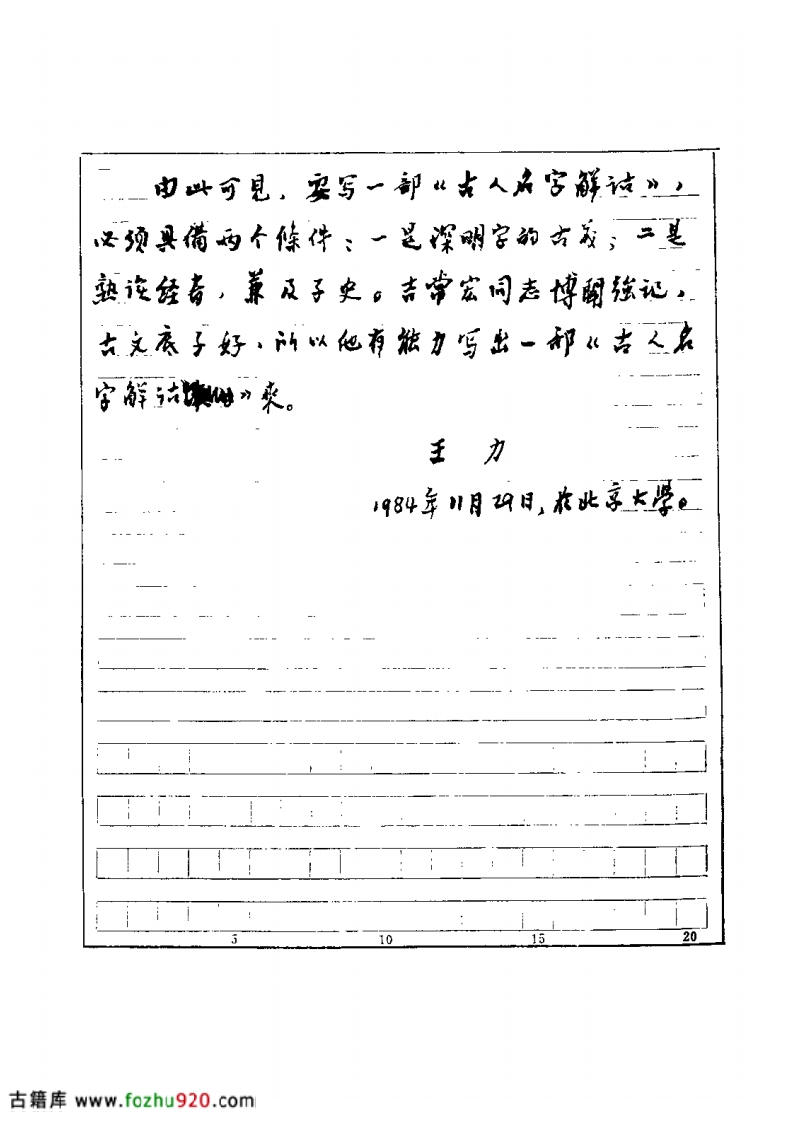 由此可見，要写一部《古人名字解诂》，
必须具備两个條件：一是深明字的古義；二是
熟读经書，兼及子史。吉常宏同志博聞強记，
古文底子好，所以他有能力写出一部《古人名
字解诂》来。
王 力
1984年11月29日，於北京大學。
5 10 15 20
古籍库 www.fozhu920.com